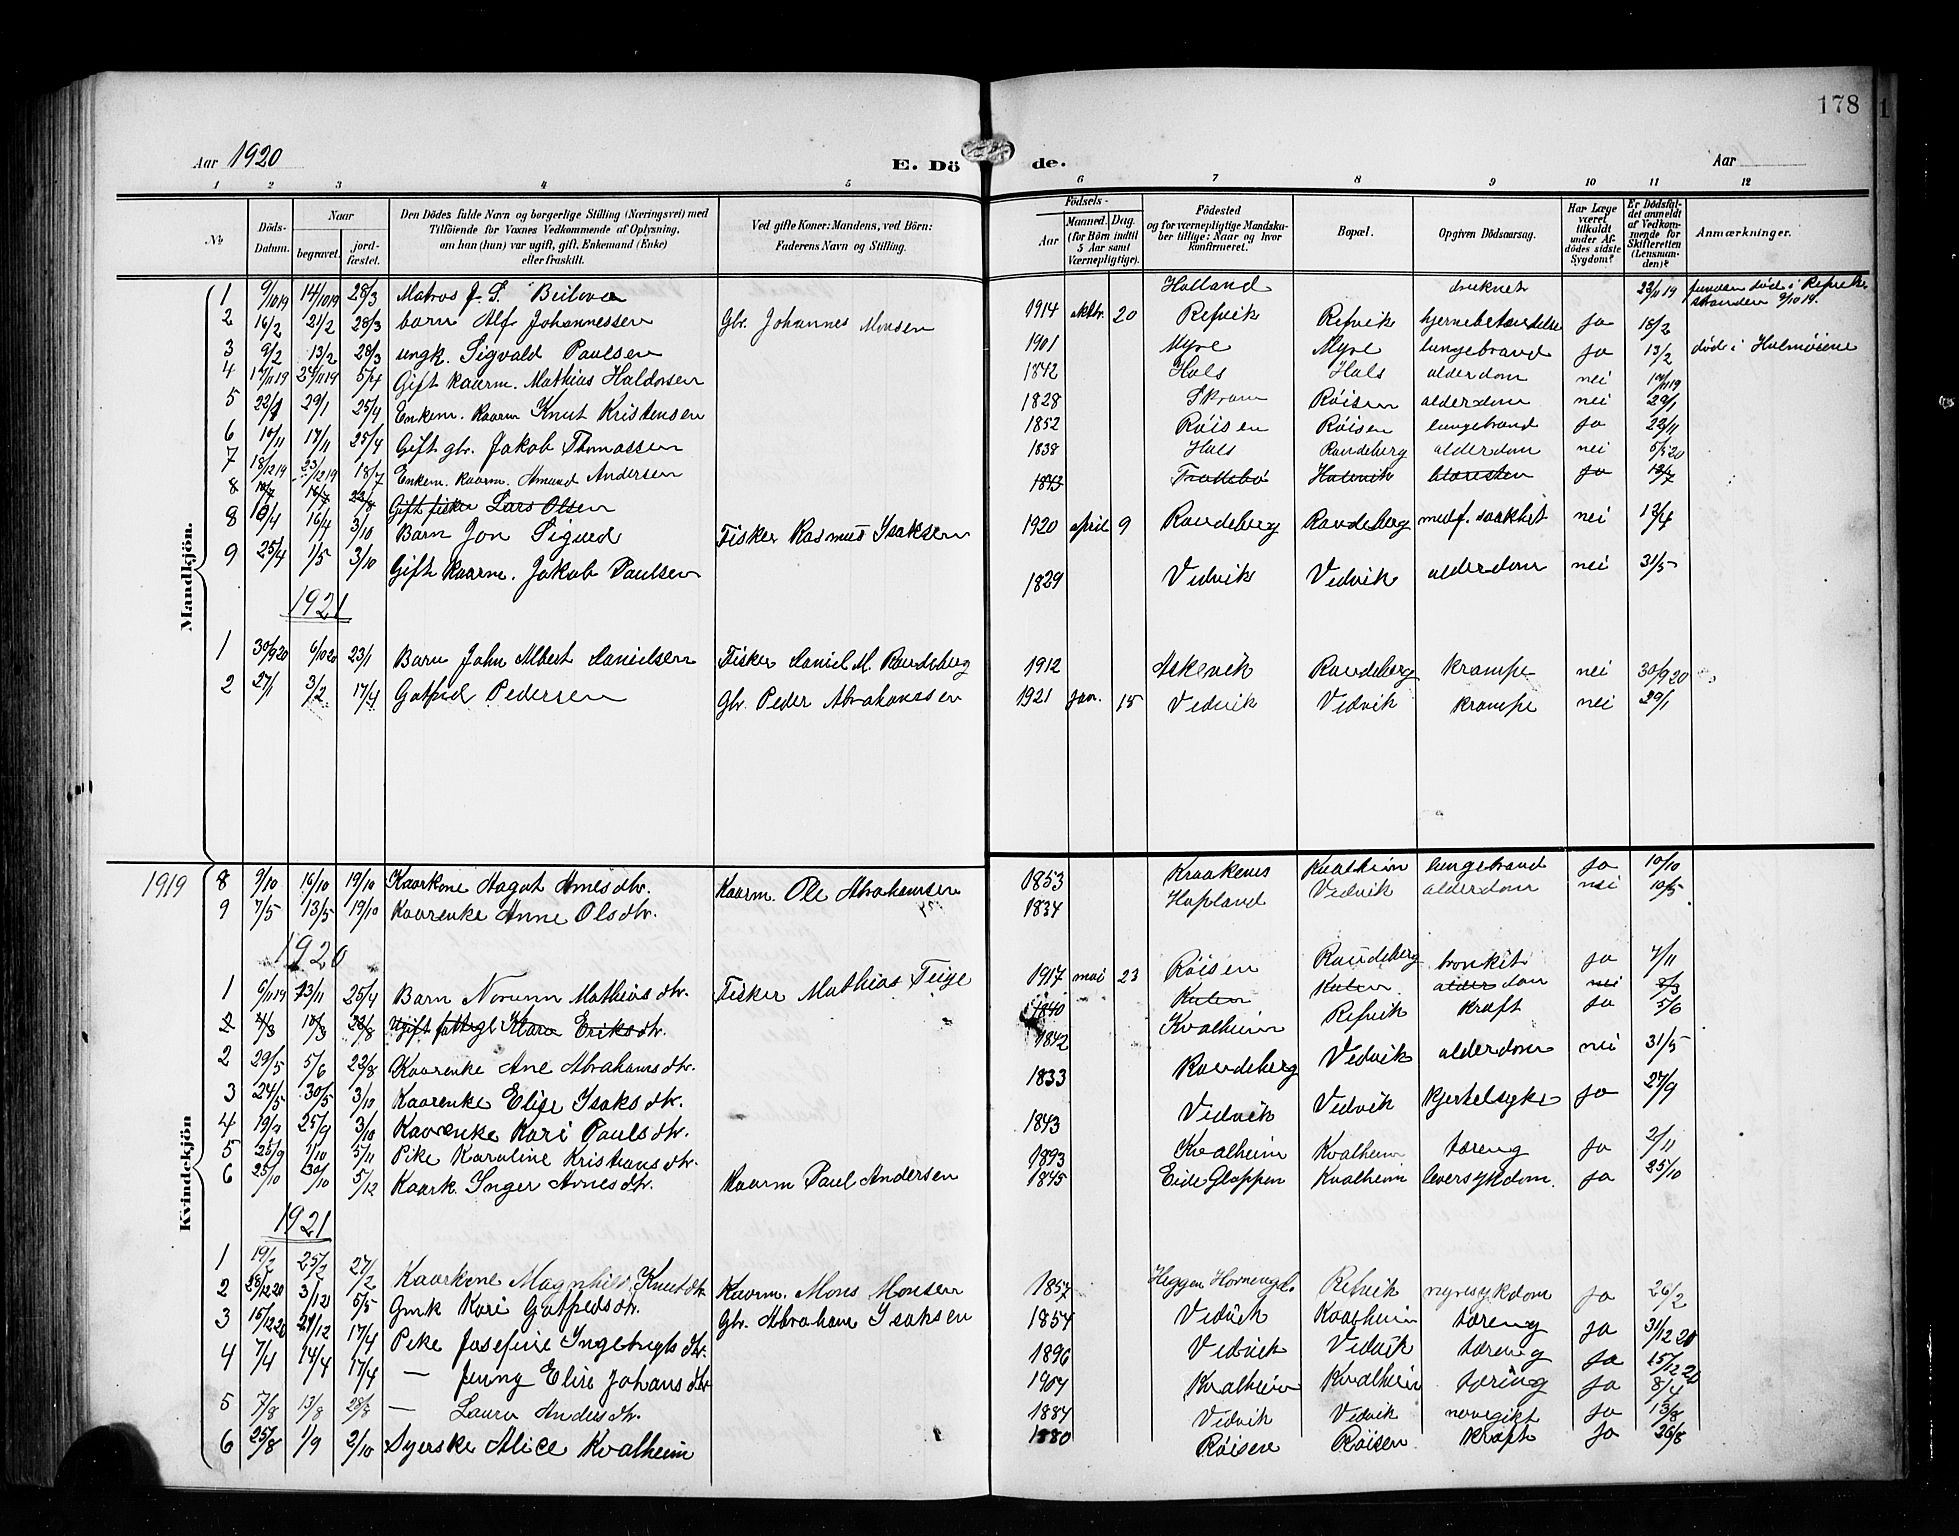 178
Aar 1920
E. Dö de.
Aar
1 2 3 4 5 6 7 8 9 10 11 12
№ Döds-Datum. Naar begravet. jord-fæstet. Den Dödes fulde Navn og borgerlige Stilling (Næringsvei) med Tilföiende for Voxnes Vedkommende af Oplysning, om han (hun) var ugift, gift, Enkemand (Enke) eller fraskilt. Ved gifte Koner: Mandens, ved Börn: Faderens Navn og Stilling. Födsels- Aar Maaned. Dag. (for Börn indtil 5 Aar samt Værnepligtige). Födested og for værnepligtige Mandskaber tillige: Naar og hvor konfirmeret. Bopæl. Opgiven Dödsaarsag. Har Læge været tilkaldt under Afdödes sidste Sygdom? Er Dödsfaldet anmeldt af Vedkommende for Skifteretten (Lensmanden)? Anmærkninger.
Mandkjön.
1 9/10 19 14/10 19 28/3 Matros J. S. Holland druknet 22/11 19 funden död i Refviks stranden 9/10 19.
2 16/2 21/2 28/3 barn Alf Johannessen Gbr. Johannes Monsen 1914 oktbr. 20 Refvik Refvik hjernebetændelse ja 18/2
3 9/2 13/2 28/3 ungk. Sigvald Paulsen 1901 Myre Myre lungebrand ja 13/2 död i Hulmöiene
4 17/11 19 24/11 19 5/4 Gift kaarm. Mathias Haldorsen 1842 Hals Hals alderdom nei 19/11 19
5 22/1 29/1 25/4 Enkem. kaarm Knut Kristensen 1828 Skram Röisen alderdom nei 29/1
6 10/11 17/11 25/4 Gift gbr. Jakob Thomassen 1852 Röisen Röisen lungebrand ja 22/11
7 18/12 19 23/12 19 18/7 Enkem. kaarm. Amund Andersen 1838 Hals Raudeberg alderdom nei 5/1 20
8 10/7 16/7 22/8 Gift fisker Lars Olsen 1843 Halsvik blæresten ja 12/7
8 10/4 16/4 3/10 Barn Jon Sigurd Fisker Rasmus Isaksen 1920 april 9 Raudeberg Raudeberg medf. svakhet nei 12/4
9 25/4 1/5 3/10 Gift kaarm. Jakob Paulsen 1829 Vedvik Vedvik alderdom nei 31/5
1921
1 30/9 20 6/10 20 23/1 Barn John Albert Danielsen Fisker Daniel M. Raudeberg 1912 Askevik Raudeberg krampe nei 30/9 20
2 27/1 3/2 17/4 Gotfred Pedersen Gbr. Peder Abrahamsen 1921 jan. 15 Vedvik Vedvik krampe nei 29/1
Kvindekjön
1919 8 9/10 16/10 19/10 Kaarkone Hagat Arnesdtr. Kaarm. Ole Abrahamsen 1853 Kraakenes Kvalheim lungebrand ja 10/10
9 7/5 13/5 19/10 Kaarenke Anne Olsdtr. 1834 Hapland Vedvik alderdom nei 10/5
1920
1 6/11 19 13/11 25/4 Barn Norunn Mathiasdtr. Fisker Mathias Teige 1917 mai 23 Röisen Raudeberg bronkit ja 7/11
2 4/3 10/3 22/8 Ugift fattigl. Klara Eriksdtr. 1840 Kulen Kulen alderdom nei 8/3
2 29/5 5/6 22/8 Kaarenke Ane Abrahamsdtr. 1842 Kvalheim Refvik kræft ja 5/6
3 24/5 30/5 3/10 Kaarenke Elise Isaksdtr. 1833 Raudeberg Vedvik alderdom nei 31/5
4 19/9 25/9 3/10 Kaarenke Kari Paulsdtr. 1843 Vedvik Vedvik kjertelsyke ja 27/9
5 25/9 1/10 5/11 Pike Karoline Kristiansdtr. 1893 Kvalheim Kvalheim tæring ja 2/11
6 25/10 30/10 5/12 Kaark. Inger Arnesdtr. Kaarm Paul Andersen 1845 Eide Gloppen Kvalheim leversykdom. ja 25/10
1921
1 19/2 25/2 27/2 Kaarkone Magnhild Knutsdtr. Kaarm. Mons Monsen 1857 Heggen Hornengdl. Refvik nyresykdom ja 26/2
2 28/12 20 3/1 21 5/5 Gmk Kari Gotfredsdtr. Gbr. Abraham Isaksen 1854 Vedvik Kvalheim tæring ja 31/12 20
3 15/12 20 21/12 17/4 Pike Josefine Ingebrigtsdtr. 1896 Vedvik Vedvik tæring ja 15/12 20
4 7/4 14/4 17/4 — Jenny Elise Johansdtr 1904 Kvalheim Kvalheim tæring ja 8/4
5 7/8 13/8 28/8 — Laura Andersdtr. 1884 Vedvik Vedvik nervegikt ja 13/8
6 25/8 1/9 2/10 Syerske Alice Kvalheim 1880 Röisen Röisen kræft ja 26/8